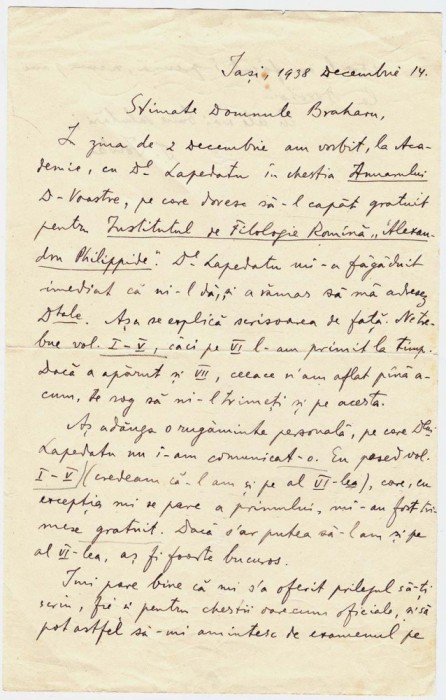 Iași, 1938 Decembrie 14.
Stimate Domnule Braharu,
În ziua de 2 Decembrie am vorbit, la Aca-
demie, cu Dl Lapedatu în chestia Anuarului
D-Voastre, pe care doresc să-l capăt gratuit
pentru Institutul de Filologie Romînă „Alexan-
dru Philippide”. Dl Lapedatu mi-a făgăduit
imediat că ni-l dă, și a rămas să mă adresez
Dtale. Așa se explică scrisoarea de față. Ne tre-
bue vol. I–V, căci pe VI l-am primit la timp.
Dacă a apărut și VII, ceeace n'am aflat pînă a-
cum, te rog să ni-l trimeți și pe acesta.
Aș adăuga o rugăminte personală, pe care Dlui
Lapedatu nu i-am comunicat-o. Eu posed vol.
I–V (credeam că-l am și pe al VI-lea), care, cu
excepția mi se pare a primului, mi-au fost tri-
mese gratuit. Dacă s'ar putea să-l am și pe
al VI-lea, aș fi foarte bucuros.
Îmi pare bine că mi s'a oferit prilejul să-ți
scriu, fie și pentru chestii oarecum oficiale, și să
pot astfel să-mi amintesc de examenul pe